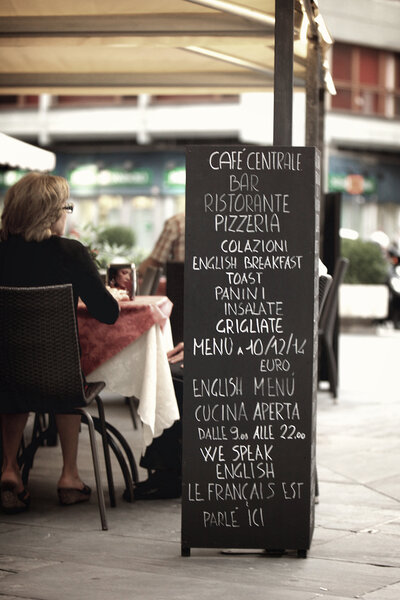 CAFÉ CENTRALE
BAR
RISTORANTE
PIZZERIA
COLAZIONI
ENGLISH BREAKFAST
TOAST
PANINI
INSALATE
GRIGLIATE
MENÙ A 10/12/14
EURO
ENGLISH MENÚ
CUCINA APERTA
DALLE 9.00 ALLE 22.00
WE SPEAK
ENGLISH
LE FRANÇAIS EST
PARLÈ ICI